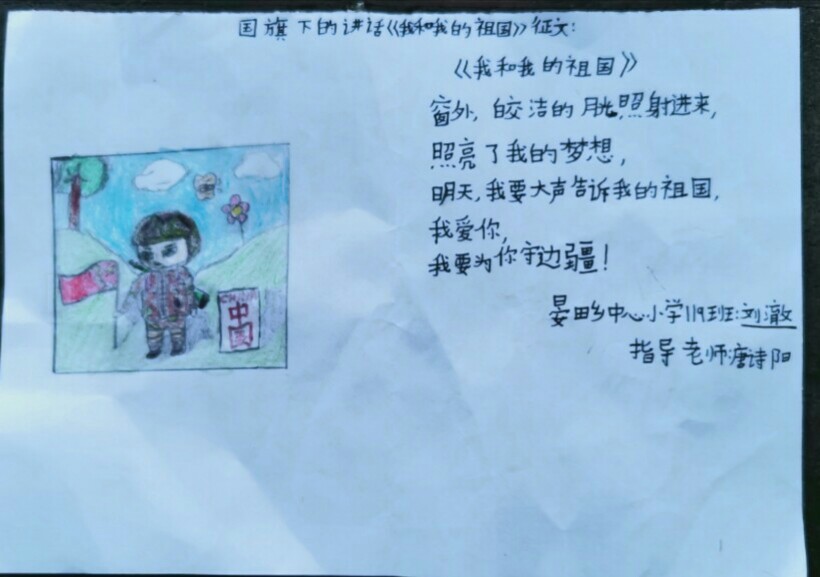 国旗下的讲话《我和我的祖国》征文:
《我和我的祖国》
窗外,皎洁的月光,照射进来,
照亮了我的梦想,
明天,我要大声告诉我的祖国,
我爱你,
我要为你守边疆!
晏田乡中心小学119班:刘澈
指导老师唐诗阳
CHINA
中国